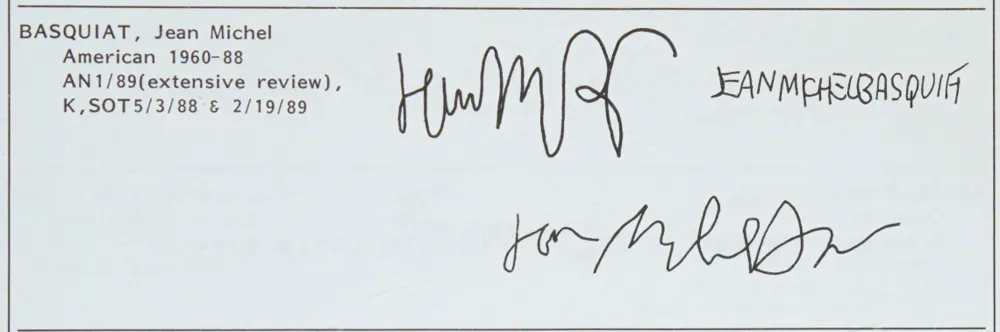 BASQUIAT, Jean Michel
American 1960-88
AN1/89(extensive review),
K,SOT5/3/88 & 2/19/89
JEANMICHELBASQUIAT
Jean Michel